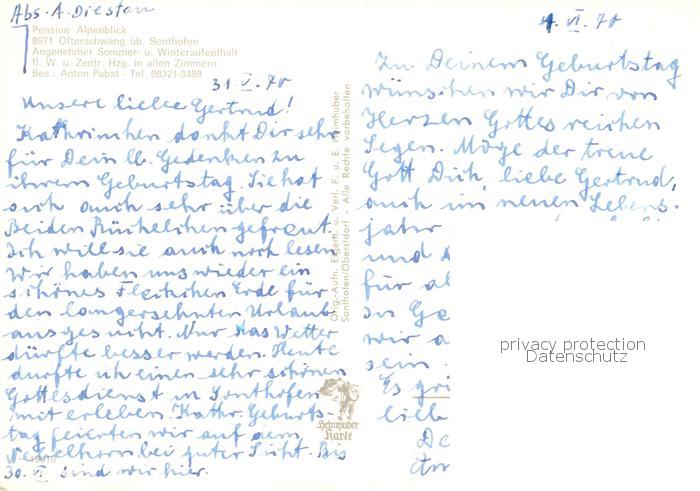 Abs. A. Diestan
Pension Alpenblick
8971 Ofterschwang üb. Sonthofen
Angenehmer Sommer- u. Winteraufenthalt
fl. W. u. Zentr. Hzg. in allen Zimmern
Bes.: Anton Pabst - Tel. 08321-3488
31. V. 70
Unsere liebe Gertrud!
Kathrinchen dankt Dir sehr
für Dein lb. Gedenken zu
ihrem Geburtstag. Sie hat
sich auch sehr über die
Beiden Büchelchen gefreut.
Ich will sie auch noch lesen
Wir haben uns wieder ein
schönes Fleckchen Erde für
den langersehnten Urlaub
ausgesucht. Nur das Wetter
dürfte besser werden. Heute
durfte ich einen sehr schönen
Gottesdienst in Sonthofen
mit erleben. Kathr. Geburts-
tag feierten wir auf dem
Nebelhorn bei guter Sicht. Bis
30. VI sind wir hier.
Orig.-Aufn. Eigent. u. Verl. F. u. E. Heimhuber
Sonthofen/Oberstdorf - Alle Rechte vorbehalten
Heimhuber
Karte
4. VI. 70
Zu Deinem Geburtstag
wünschen wir Dir von
Herzen Gottes reichen
Segen. Möge der treue
Gott Dich, liebe Gertrud,
auch im neuen Lebens-
jahr
und
für al
In Ge
wir a
sein.
Es gri
lieb
De
privacy protection
Datenschutz